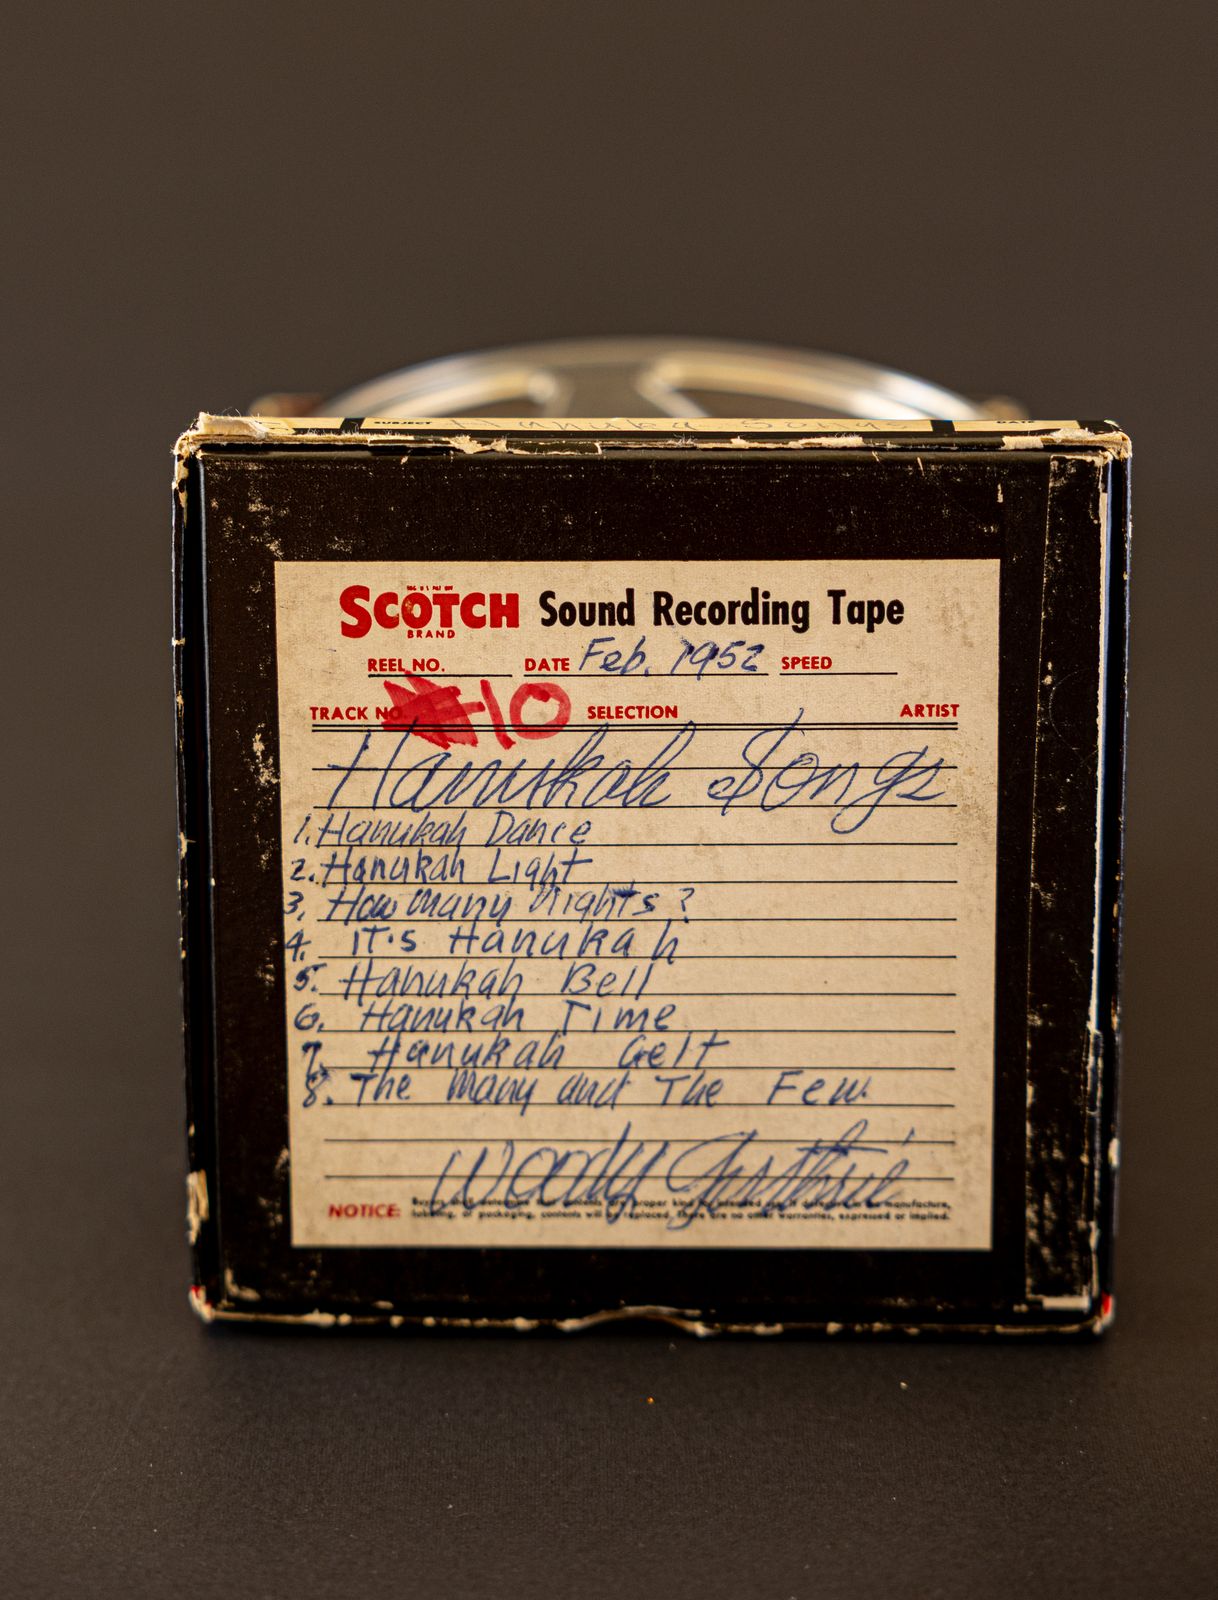 SUBJECT Hanuka Songs DATE
SCOTCH Sound Recording Tape
BRAND
REEL NO. DATE Feb. 1952 SPEED
TRACK NO. 10 SELECTION ARTIST
Hanukah Songs
1. Hanukah Dance
2. Hanukah Light
3. How Many Nights?
4. IT's Hanukah
5. Hanukah Bell
6. Hanukah Time
7. Hanukah Gelt
8. The Many and The Few.
Woody Guthrie
NOTICE: Buyers shall determine that contents are proper kind for intended use. If defective in manufacture,
labeling, or packaging, contents will be replaced. There are no other warranties, expressed or implied.